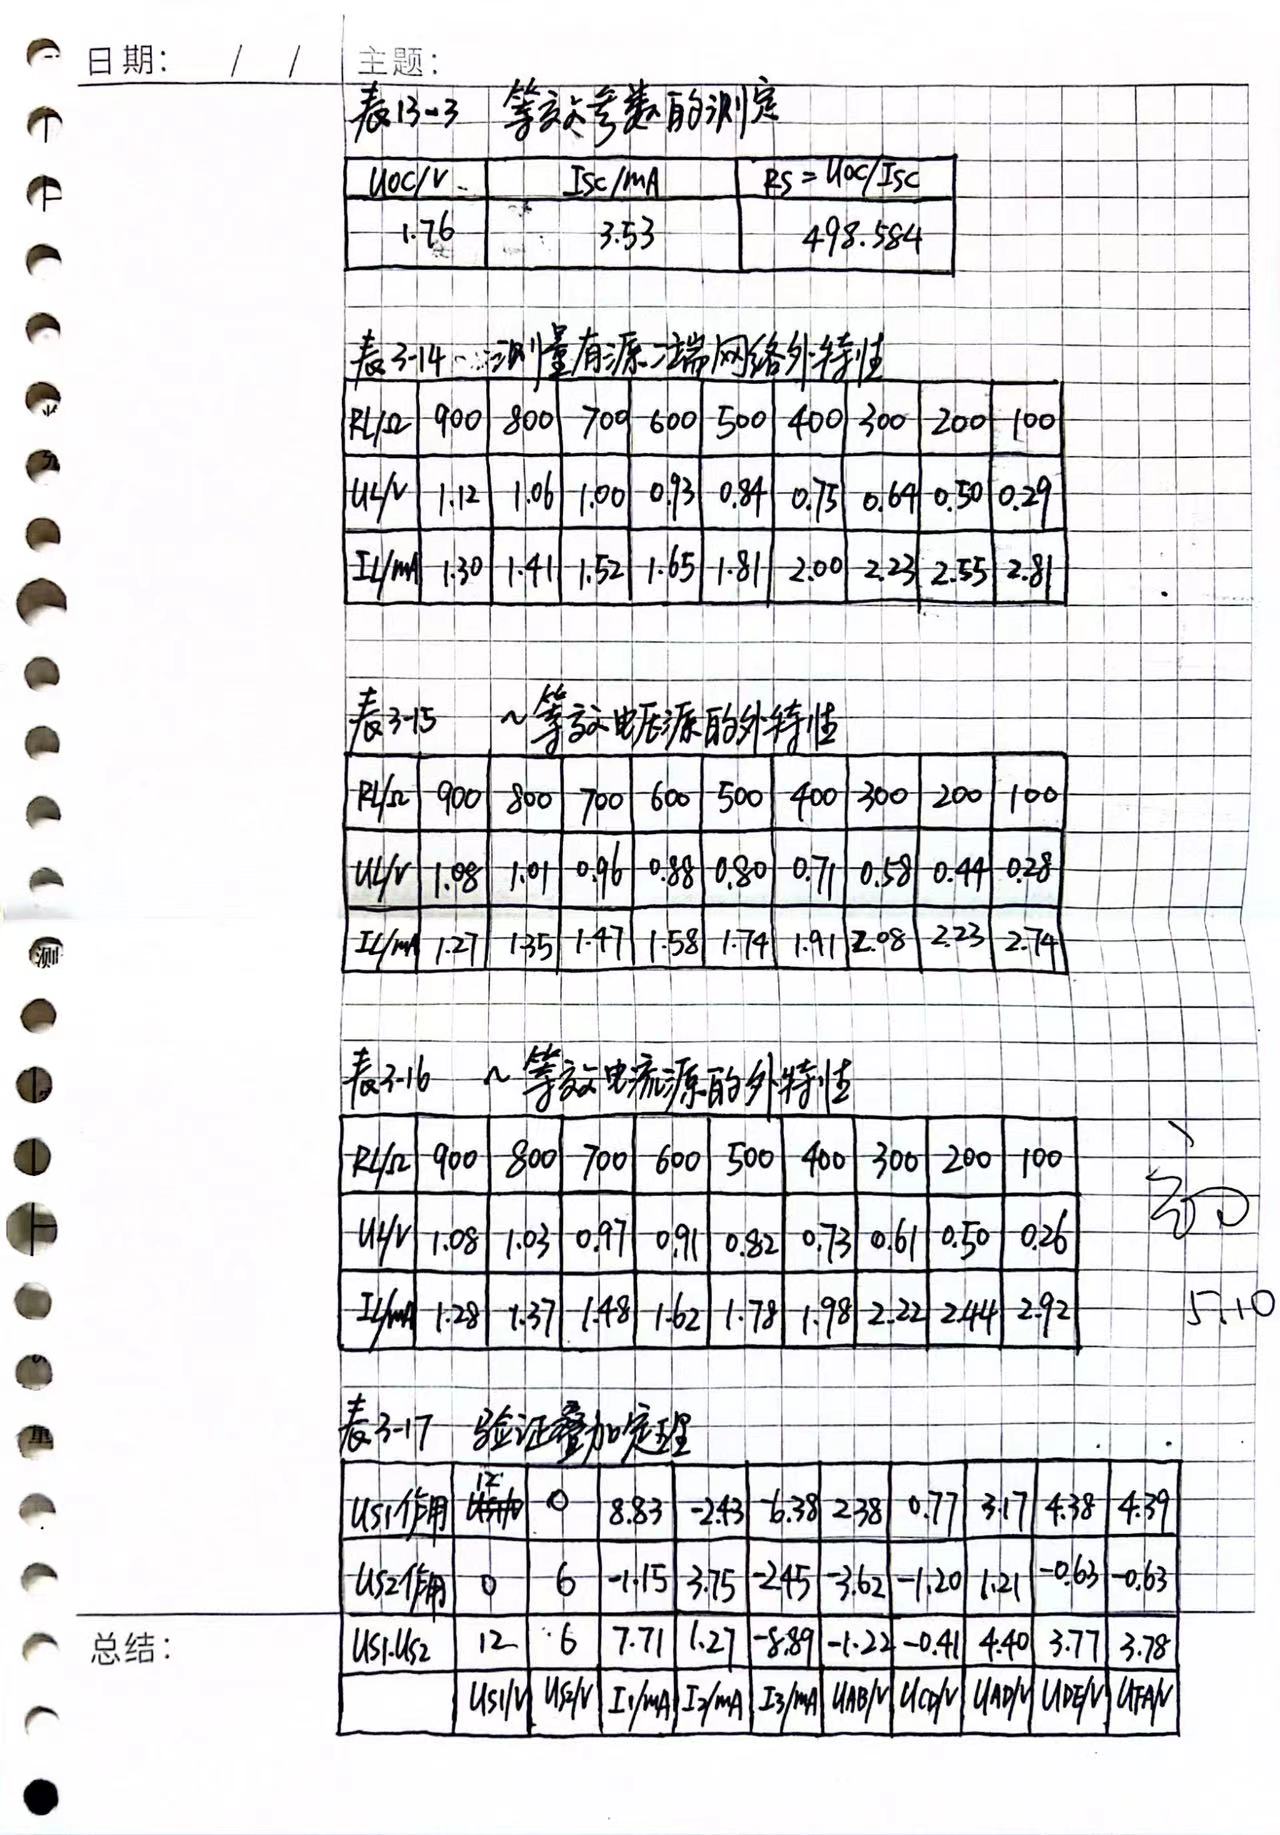 日期： / / 主题：
表13-3 等效参数的测定
UOC/V ISC/mA RS=UOC/ISC
1.76 3.53 498.584
表3-14 ~测量有源二端网络外特性
RL/Ω 900 800 700 600 500 400 300 200 100
UL/V 1.12 1.06 1.00 0.93 0.84 0.75 0.64 0.50 0.29
IL/mA 1.30 1.41 1.52 1.65 1.81 2.00 2.23 2.55 2.81
表3-15 ~等效电压源的外特性
RL/Ω 900 800 700 600 500 400 300 200 100
UL/V 1.08 1.01 0.96 0.88 0.80 0.71 0.58 0.44 0.28
IL/mA 1.27 1.35 1.47 1.58 1.74 1.91 2.08 2.23 2.74
测
表3-16 ~等效电流源的外特性
RL/Ω 900 800 700 600 500 400 300 200 100
UL/V 1.08 1.03 0.97 0.91 0.82 0.73 0.61 0.50 0.26
IL/mA 1.28 1.37 1.48 1.62 1.78 1.98 2.22 2.44 2.92
5.10
表3-17 验证叠加定理
US1作用 12 0 8.83 -2.43 -6.38 2.38 0.77 3.17 4.38 4.39
US2作用 0 6 -1.15 3.75 -2.45 -3.62 -1.20 1.21 -0.63 -0.63
US1.US2 12 6 7.71 1.27 -8.89 -1.22 -0.41 4.40 3.77 3.78
US1/V US2/V I1/mA I2/mA I3/mA UAB/V UCD/V UAD/V UDE/V UFA/V
总结：